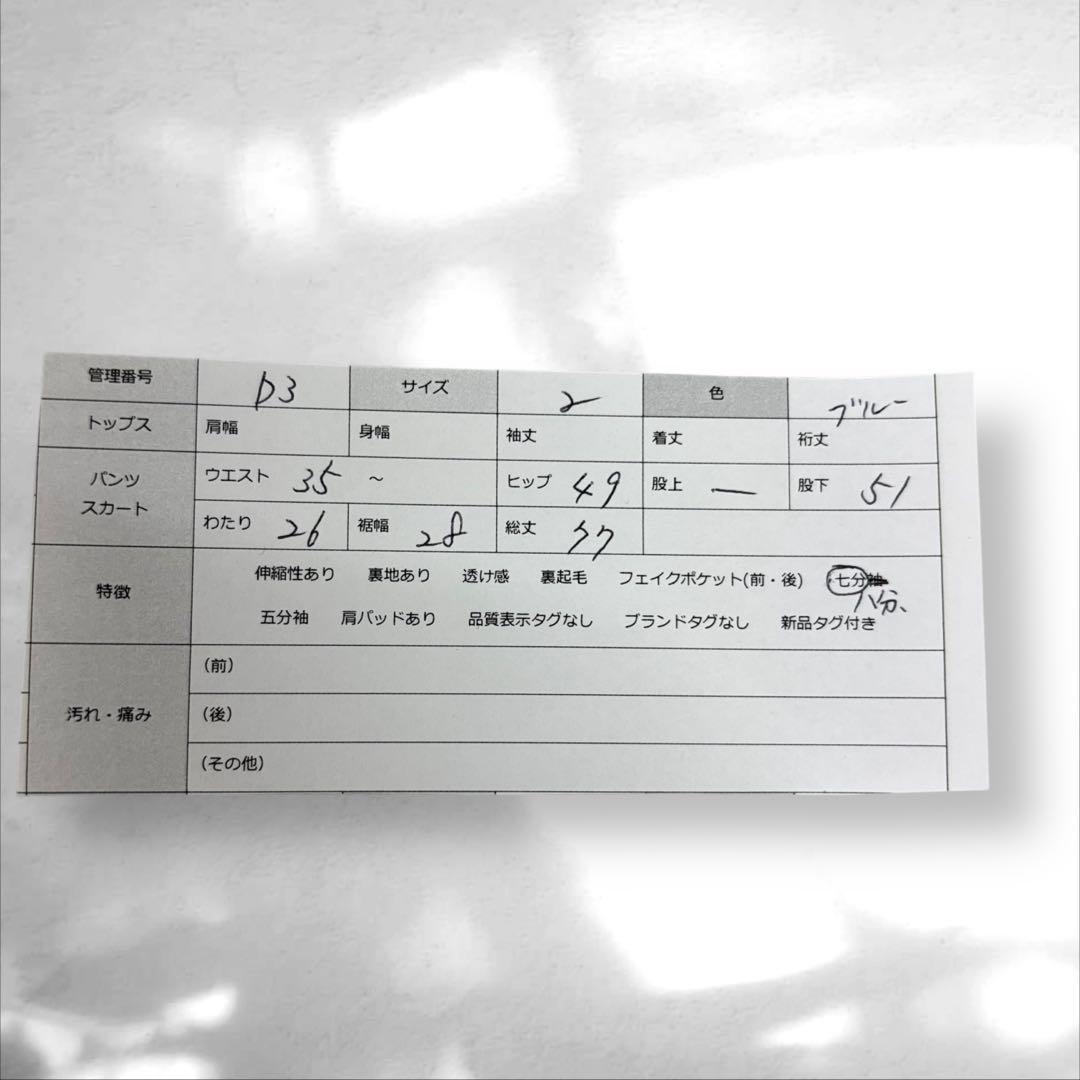 管理番号 D3 サイズ 2 色 ブルー
トップス 肩幅 身幅 袖丈 着丈 裄丈
パンツ スカート
ウエスト 35 ～ ヒップ 49 股上 ー 股下 51
わたり 26 裾幅 28 総丈
特徴
伸縮性あり 裏地あり 透け感 裏起毛 フェイクポケット(前・後) 七分袖
八分、
五分袖 肩パッドあり 品質表示タグなし ブランドタグなし 新品タグ付き
汚れ・痛み
(前)
(後)
(その他)